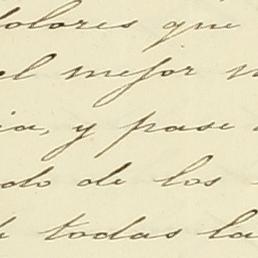 dolores que
el mejor
ia, y pase
do de los
todas la